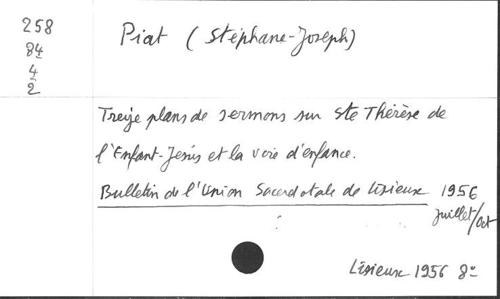 258
84
4
2
Piat (Stéphane-Joseph)
Treize plans de sermons sur Ste Thérèse de
l'Enfant-Jésus et la voie d'enfance.
Bulletin de l'Union Sacerdotale de Lisieux 1956
juillet/Oct
Lisieux 1956 8º